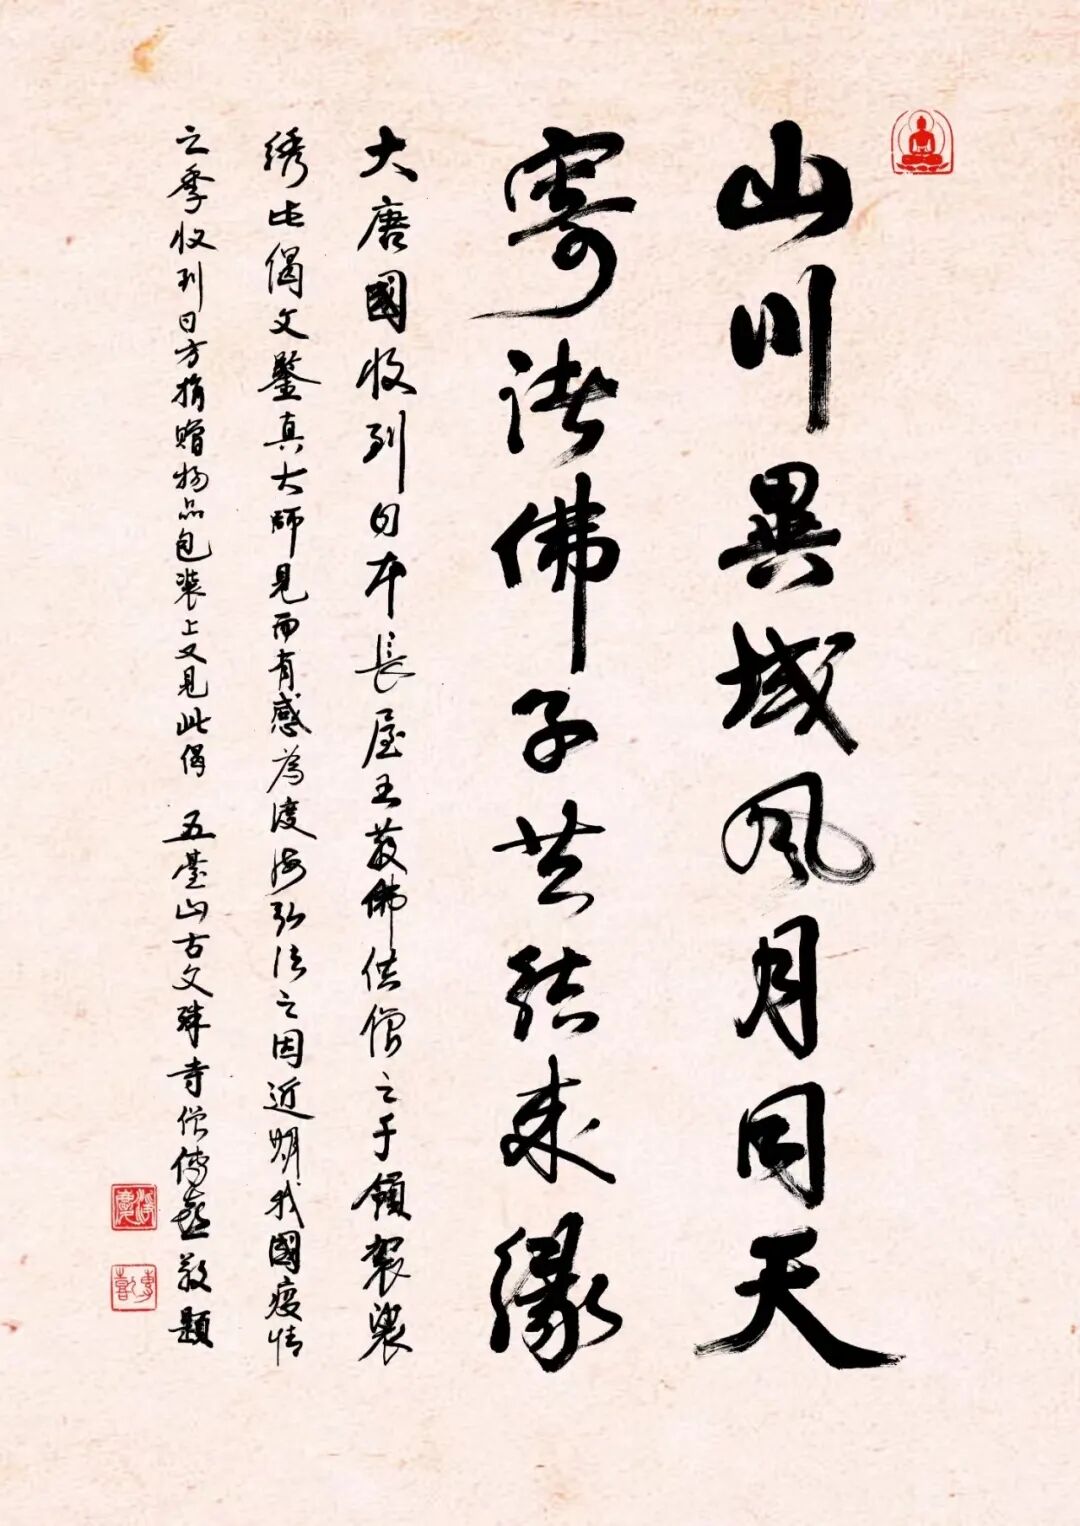 山川異域风月同天
寄诸佛子共结来缘
大唐國收到日本長屋王敬佛供僧之千領袈裟
绣此偈文鑒真大師見而有感為渡海弘法之因近期我國疫情
之季收到日方捐赠物品包装上又見此偈 五臺山古文殊寺僧傳喜敬題